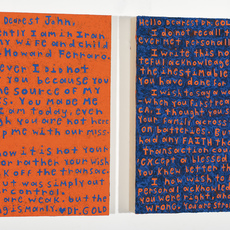 DEAREST JOHN,
ENTLY I AM IN IRAN
Y WIFE AND CHILD
HOWARD FERRARO.
EVER I DID NOT
YOU BECAUSE YOU
HE SOURCE OF MY
S. YOU MADE ME
I AM TODAY, EVEN
GH YOU ARE NOT HERE
P ME WITH OUR MISS-
OW IT IS NOT YOUR
ER RATHER YOUR WISH
K OFF THE TRANSAC.
BUT WAS SIMPLY OUT
R CONTROL.
ARE WEAK, BUT THE
G IS MANLY. MR. GOLD
HELLO DEAREST ON GOL
I DO NOT RECALL T
EVER MET PERSONALL
I WRITE THIS NO
TEFUL ACKNOWLEDGE
THE INESTIMABLE
YOU HAVE DONE FO
I WISH TO SAY A W
WHEN YOU FIRST REA
CA, I THOUGHT YOU S
YOUR FAMILY ACROSS
ON BATTERIES. BUT
HAD ANY FAITH THE
TRANSACTION COUL
EXCEPT A BLESSED
YOU KNEW BETTER TH
I NOW WISH TO
PERSONAL ACKNOWLED
YOU WERE RIGHT, AND
WRONG. YOU ARE STR